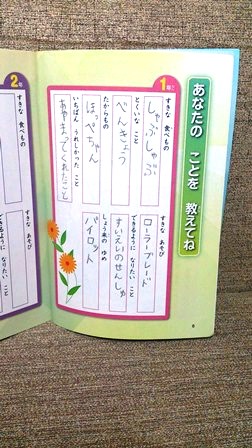 あなたの ことを 教えてね
1年
すきな 食べもの
しゃぶしゃぶ
とくいな こと
べんきょう
たからもの
ほっぺちゃん
いちばん うれしかった こと
あやまってくれたこと
すきな あそび
ローラーブレード
できるように なりたい こと
すいえいのせんしゅ
しょう来の ゆめ
パイロット
2年
すきな 食べもの
すきな あそび
できるように なりたい こと